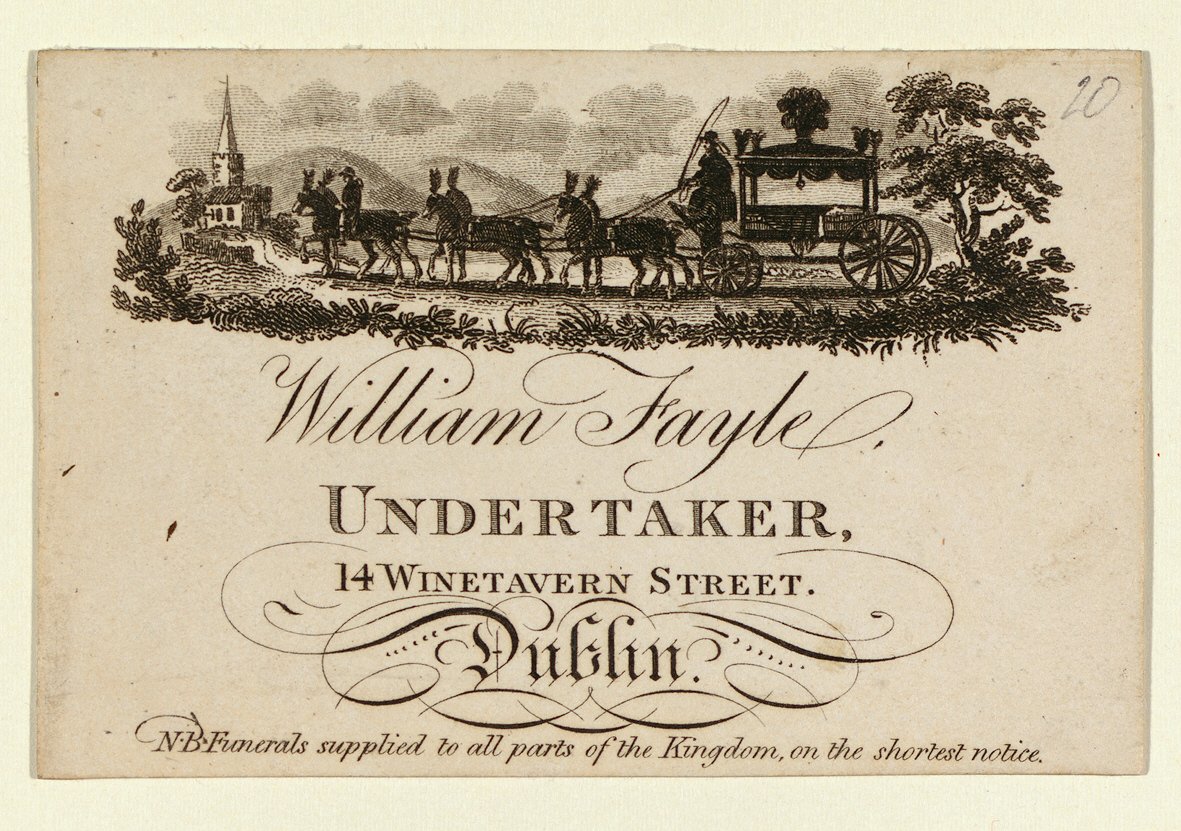 20
William Fayle.
UNDERTAKER,
14 WINETAVERN STREET.
Dublin.
N.B. Funerals supplied to all parts of the Kingdom, on the shortest notice.